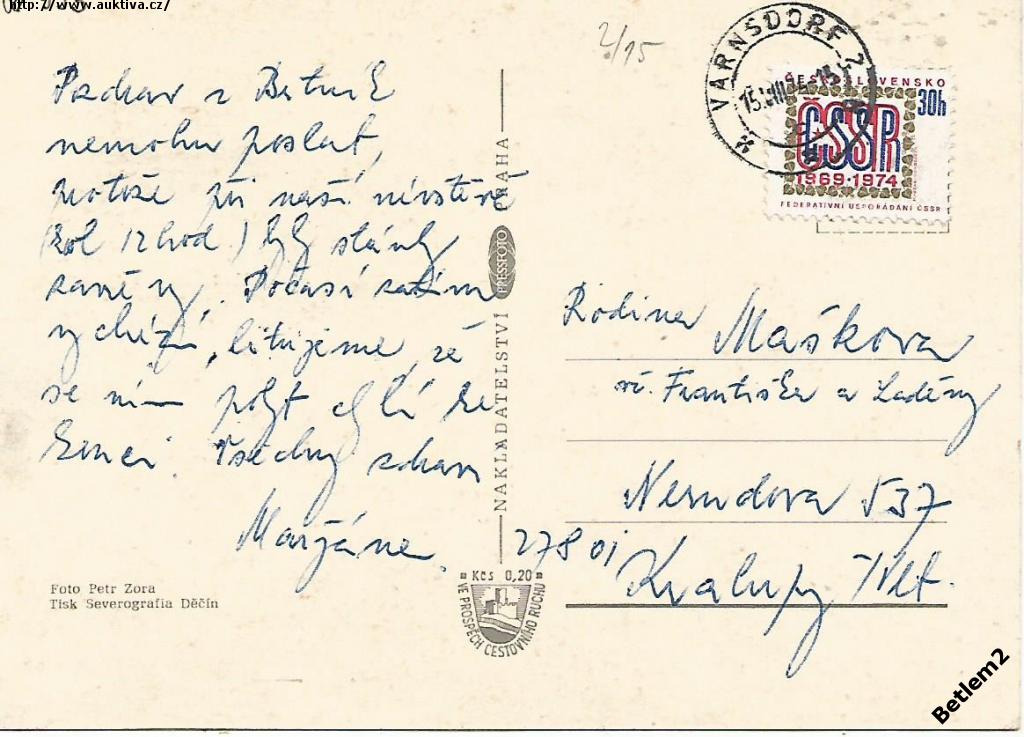 http://www.auktiva.cz/
2/15
VARNSDORF 2
ČESKOSLOVENSKO
30h
ČSSR
1969·1974
FEDERATIVNÍ USPOŘÁDÁNÍ ČSSR
Pozdrav z
nemohu poslat,
protože při naší návštěvě
(kol 12 hod) byly stánky
zavřeny. Počasí zatím
vychází, litujeme, že
se nám pobyt chýlí ke
konci. Všechny zdraví
NAKLADATELSTVÍ PRESSFOTO PRAHA
Rodina
Maškova
Františka a
Nerudova 537
278 01
Kralupy /Vlt.
Foto Petr Zora
Tisk Severografia Děčín
Kčs 0,20
VE PROSPĚCH CESTOVNÍHO RUCHU
Betlem2